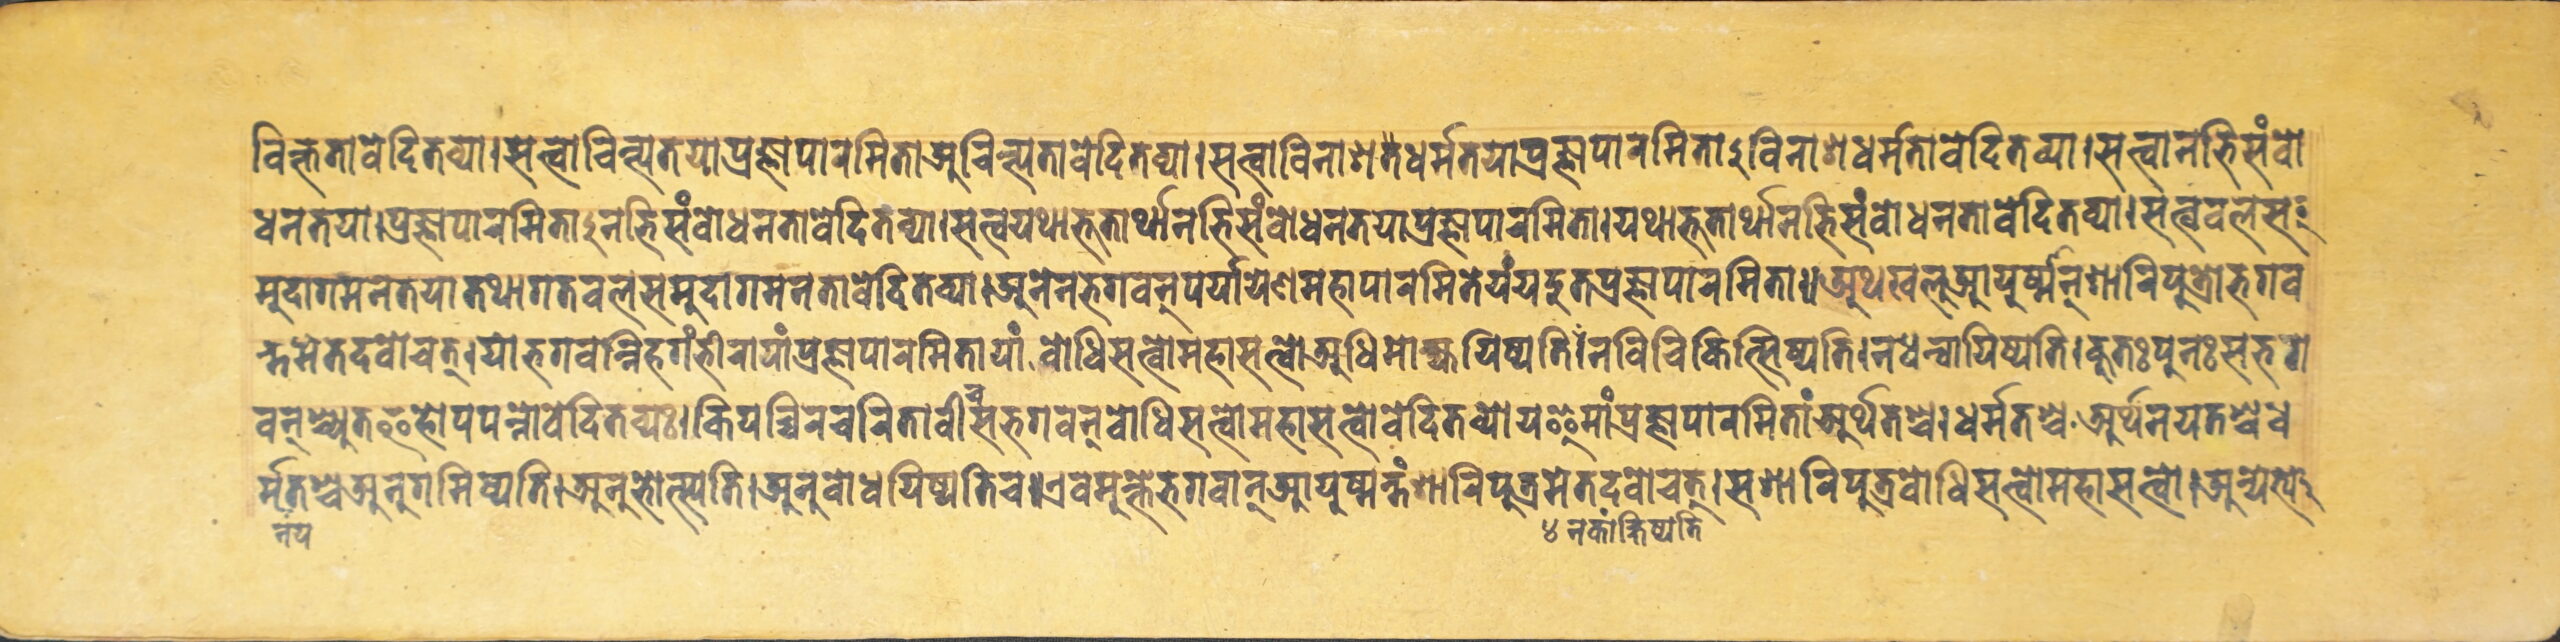 विक्तता वेदितव्या। सत्त्वाचिन्त्यतया प्रज्ञापारमिता अचिन्त्यता वेदितव्या। सत्त्वाविनाशतधर्मतया प्रज्ञापारमिताऽविनाशधर्मता वेदितव्या। सत्त्वानभिसंबो
धनतया। प्रज्ञापारमिताऽनभिसंबोधनता वेदितव्या। सत्त्वयथाभूतार्थानभिसंबोधनतया प्रज्ञापारमिता। यथाभूतार्थानभिसंबोधनता वेदितव्या। सत्त्वबलस
मुदागमनतया तथागतबलसमुदागमनता वेदितव्या। अनेन भगवन् पर्यायेण महापारमितेयं यदुत प्रज्ञापारमिता॥ अथ खलु आयुष्मान् शारिपुत्रो भगव
न्तमेतदवोचत्। यो भगवन्निह गंभीरायां प्रज्ञापारमितायां बोधिसत्त्वो महासत्त्वो अधिमोक्ष्ययिष्यति। न विचिकित्सिष्यति। न धन्वायिष्यति। कुतः पुनः स भग
वन् श्च्युत इहोपपन्नो वेदितव्यः। कियच्चिरचरितावी स भगवन् बोधिसत्त्वो महासत्त्वो वेदितव्यो य इमां प्रज्ञापारमितां अर्थतश्च। धर्मतश्च अर्थनयतश्च ध
र्मतश्च अनुगमिष्यति। अनुभोत्स्यति। अनुबोधयिष्यति च॥ एवमुक्ते भगवान् आयुष्मन्तं शारिपुत्रमेतदवोचत्। स शारिपुत्र बोधिसत्त्वो महासत्त्वो। अन्येष्ये
नय
४ न कांक्षिष्यति